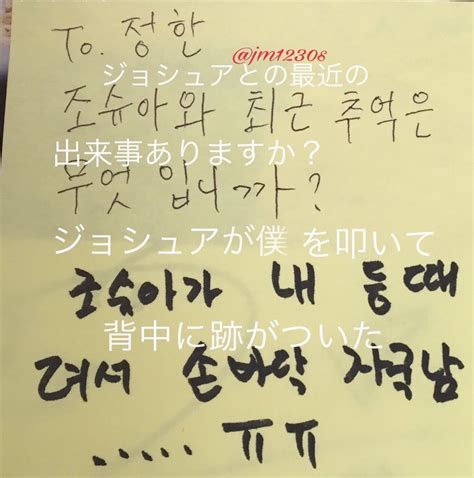 To. 정한
@jm12308
ジョシュアとの最近の
조슈아와 최근 추억은
出来事ありますか？
무엇 입니까?
ジョシュアが僕を叩いて
조슈아가 내 등때
背中に跡がついた
려서 손바닥 자국남
..... ㅠㅠ